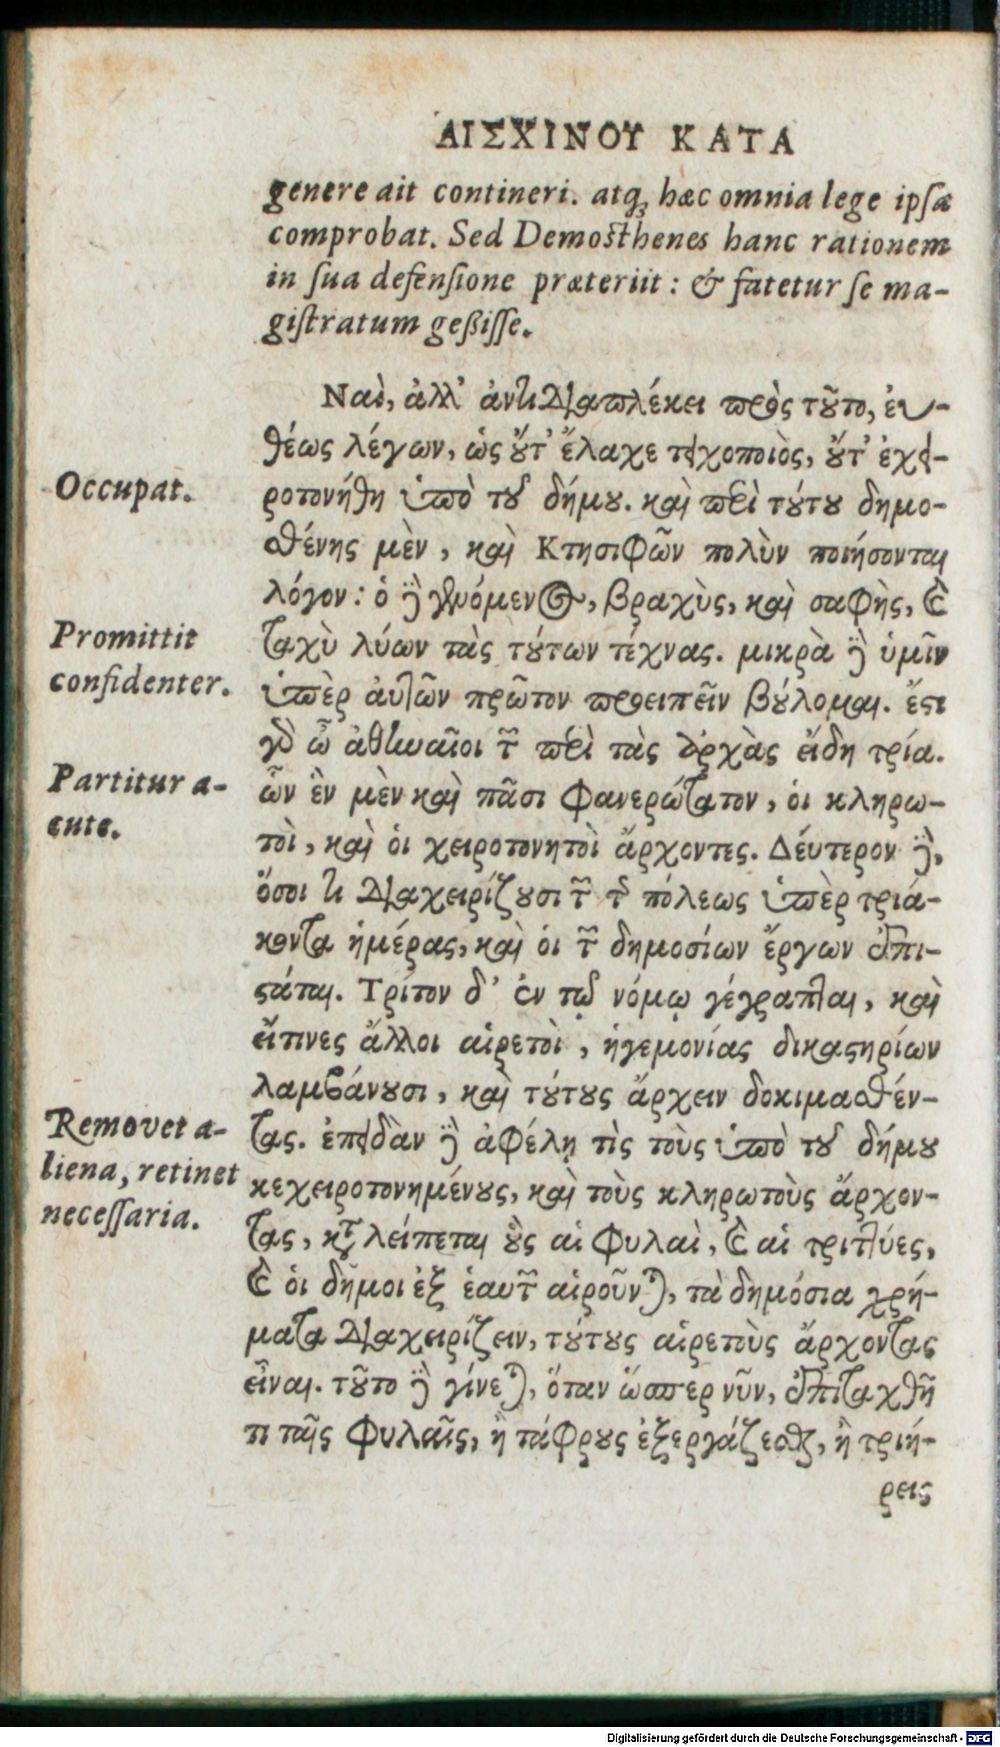 ΑΙΣΧΙΝΟΥ ΚΑΤΑ
genere ait contineri. atq; hæc omnia lege ipsa
comprobat. Sed Demosthenes hanc rationem
in sua defensione præteriit: & fatetur se ma-
gistratum geßisse.
Ναὶ, ἀλλ' ἀντιδιαπλέκει πρὸς τοῦτο, εὐ-
θέως λέγων, ὡς οὔτ' ἔλαχε τειχοποιὸς, οὔτ' ἐχει-
Occupat.
ροτονήθη ὑπὸ τοῦ δήμου. καὶ περὶ τούτου δημο-
σθένης μὲν, καὶ Κτησιφῶν πολὺν ποιήσονται
λόγον: ὁ δὲ γ' νόμος, βραχὺς, καὶ σαφὴς, καὶ
Promittit
confidenter.
ταχὺ λύων τὰς τούτων τέχνας. μικρὰ δὲ ὑμῖν
ὑπὲρ αὐτῶν πρῶτον προειπεῖν βούλομαι. ἔστι
γὰρ ὦ ἀθηναῖοι τῶν περὶ τὰς ἀρχὰς εἴδη τρία.
Partitur a-
cute.
ὧν ἓν μὲν καὶ πᾶσι φανερώτατον, οἱ κληρω-
τοὶ, καὶ οἱ χειροτονητοὶ ἄρχοντες. Δεύτερον δὲ,
ὅσοι τι διαχειρίζουσι τῶν τῆς πόλεως ὑπὲρ τριά-
κοντα ἡμέρας, καὶ οἱ τῶν δημοσίων ἔργων ἐπι-
στάται. Τρίτον δ' ἐν τῷ νόμῳ γέγραπται, καὶ
εἴ τινες ἄλλοι αἱρετοὶ, ἡγεμονίας δικαστηρίων
λαμβάνουσι, καὶ τούτους ἄρχειν δοκιμασθέν-
Removet a-
liena, retinet
necessaria.
τας. ἐπειδὰν δὲ ἀφέλῃ τὶς τοὺς ὑπὸ τοῦ δήμου
κεχειροτονημένους, καὶ τοὺς κληρωτοὺς ἄρχον-
τας, καταλείπεται οὓς αἱ φυλαὶ, καὶ αἱ τριττύες,
καὶ οἱ δῆμοι ἐξ ἑαυτῶν αἱροῦνται, τὰ δημόσια χρή-
ματα διαχειρίζειν, τούτους αἱρετοὺς ἄρχοντας
εἶναι. τοῦτο δὲ γίνεται, ὅταν ὥσπερ νῦν, ἐπιταχθῇ
τι ταῖς φυλαῖς, ἢ τάφρους ἐξεργάζεσθαι, ἢ τριή-
ρεις
Digitalisierung gefördert durch die Deutsche Forschungsgemeinschaft - DFG